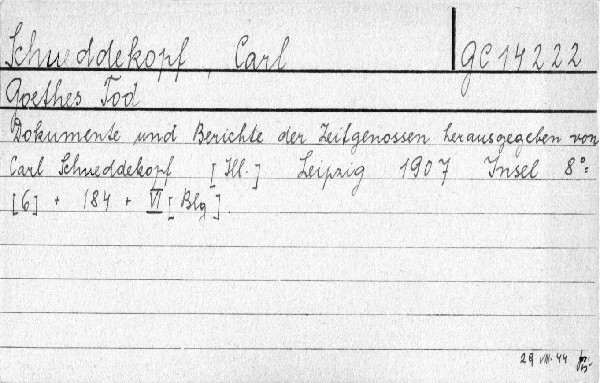 Schueddekopf, Carl GC 14222
Goethes Tod
Dokumente und Berichte der Zeitgenossen herausgegeben von
Carl Schueddekopf [Ill.] Leipzig 1907 Insel 8°:
[6] + 184 + VI [Blg].
29 VIII. 44